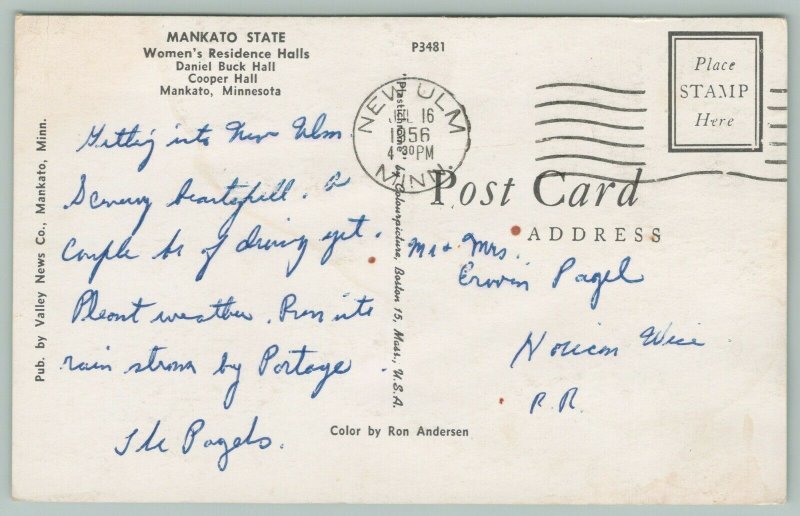 MANKATO STATE
Women's Residence Halls
Daniel Buck Hall
Cooper Hall
Mankato, Minnesota
P3481
Place
STAMP
Here
NEW ULM
JUL 16
1956
4 30PM
MINN.
Post Card
ADDRESS
Getting into New Ulm.
Scenery beautyfull. A
couple hr of driving yet.
Pleant weather. Run into
rain strom by Portage.
The Pagels.
Mr & Mrs.
Erwin Pagel
Horicon Wisc
R.R.
Pub. by Valley News Co., Mankato, Minn.
"Plastichrome" by Colourpicture, Boston 15, Mass., U.S.A.
Color by Ron Andersen